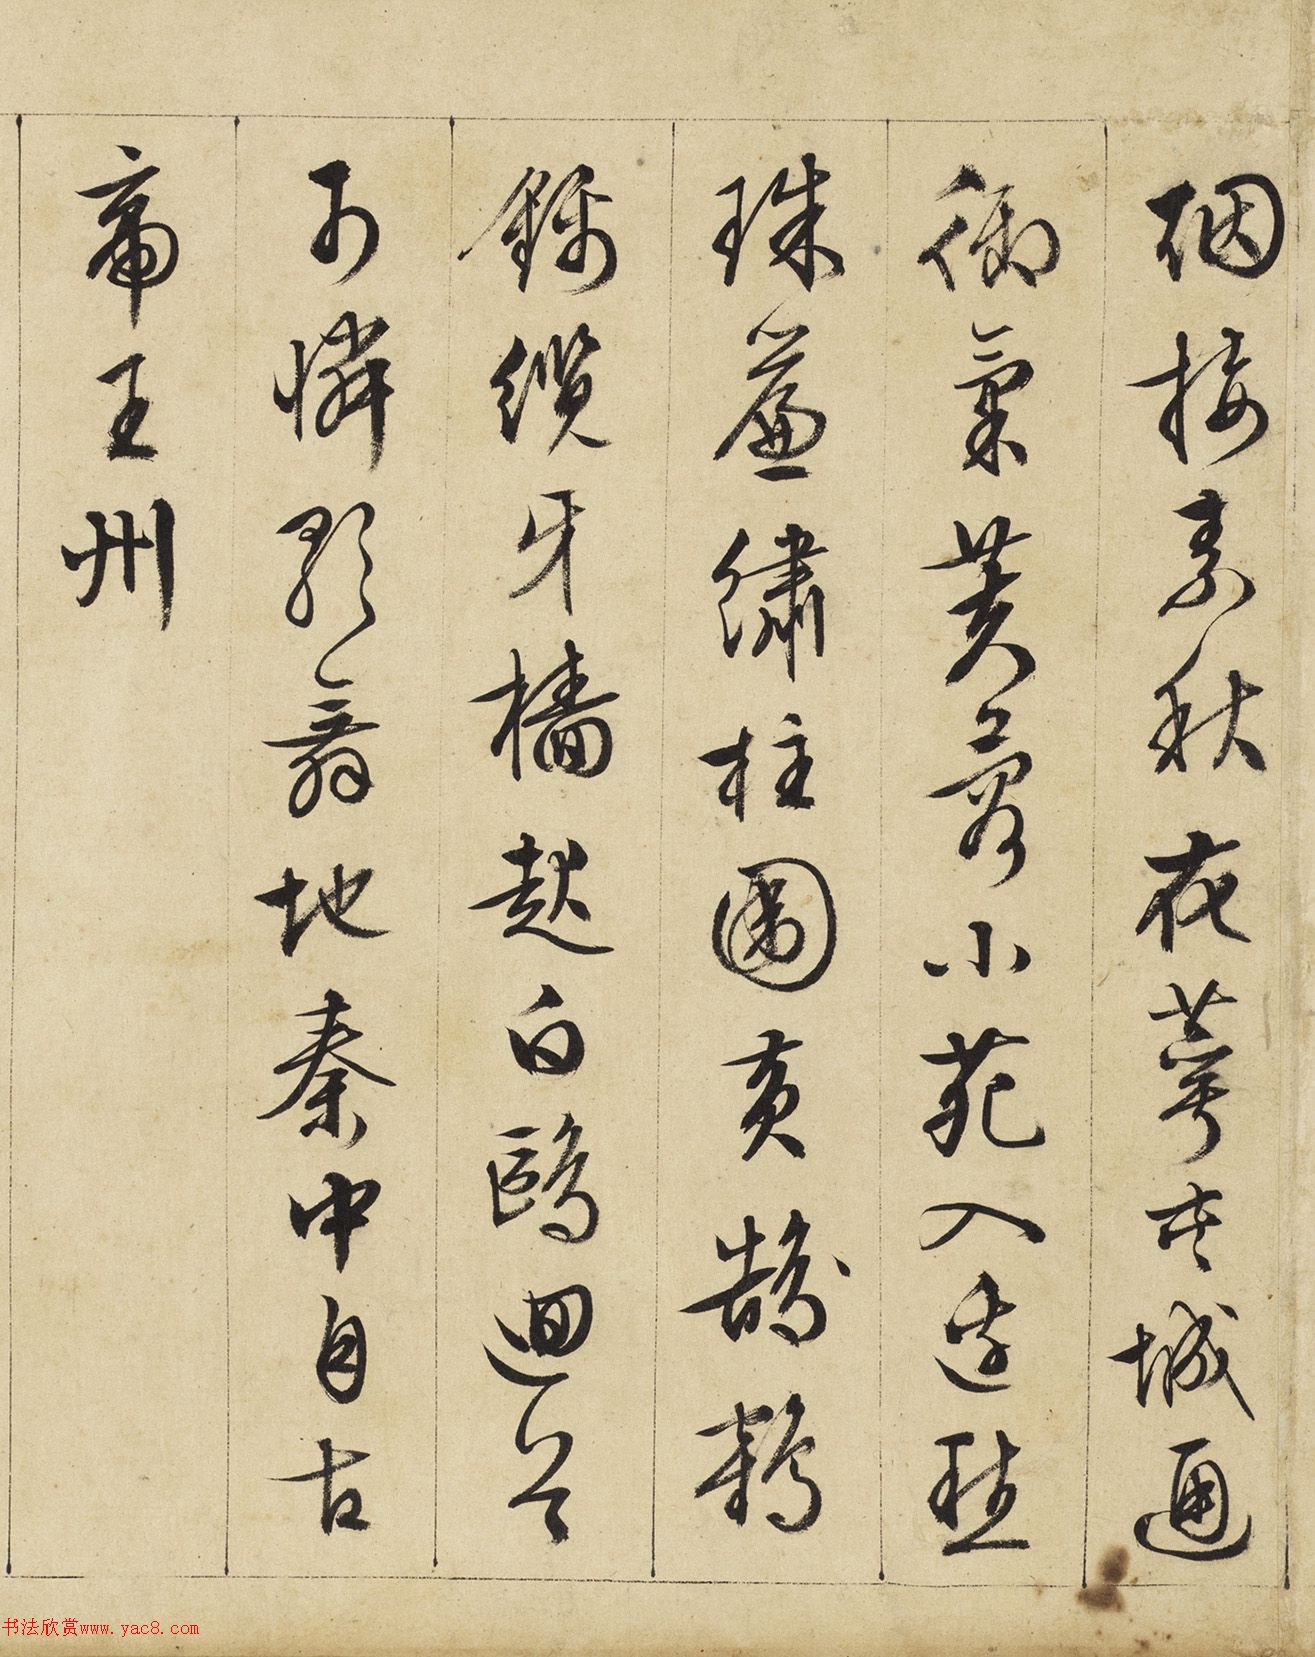 烟接素秋花萼夾城通
御氣芙蓉小苑入邊愁
珠簾繡柱圍黃鵠鶴
錦纜牙檣起白鷗迴首
可憐歌舞地秦中自古
帝王州
书法欣赏www.yac8.com